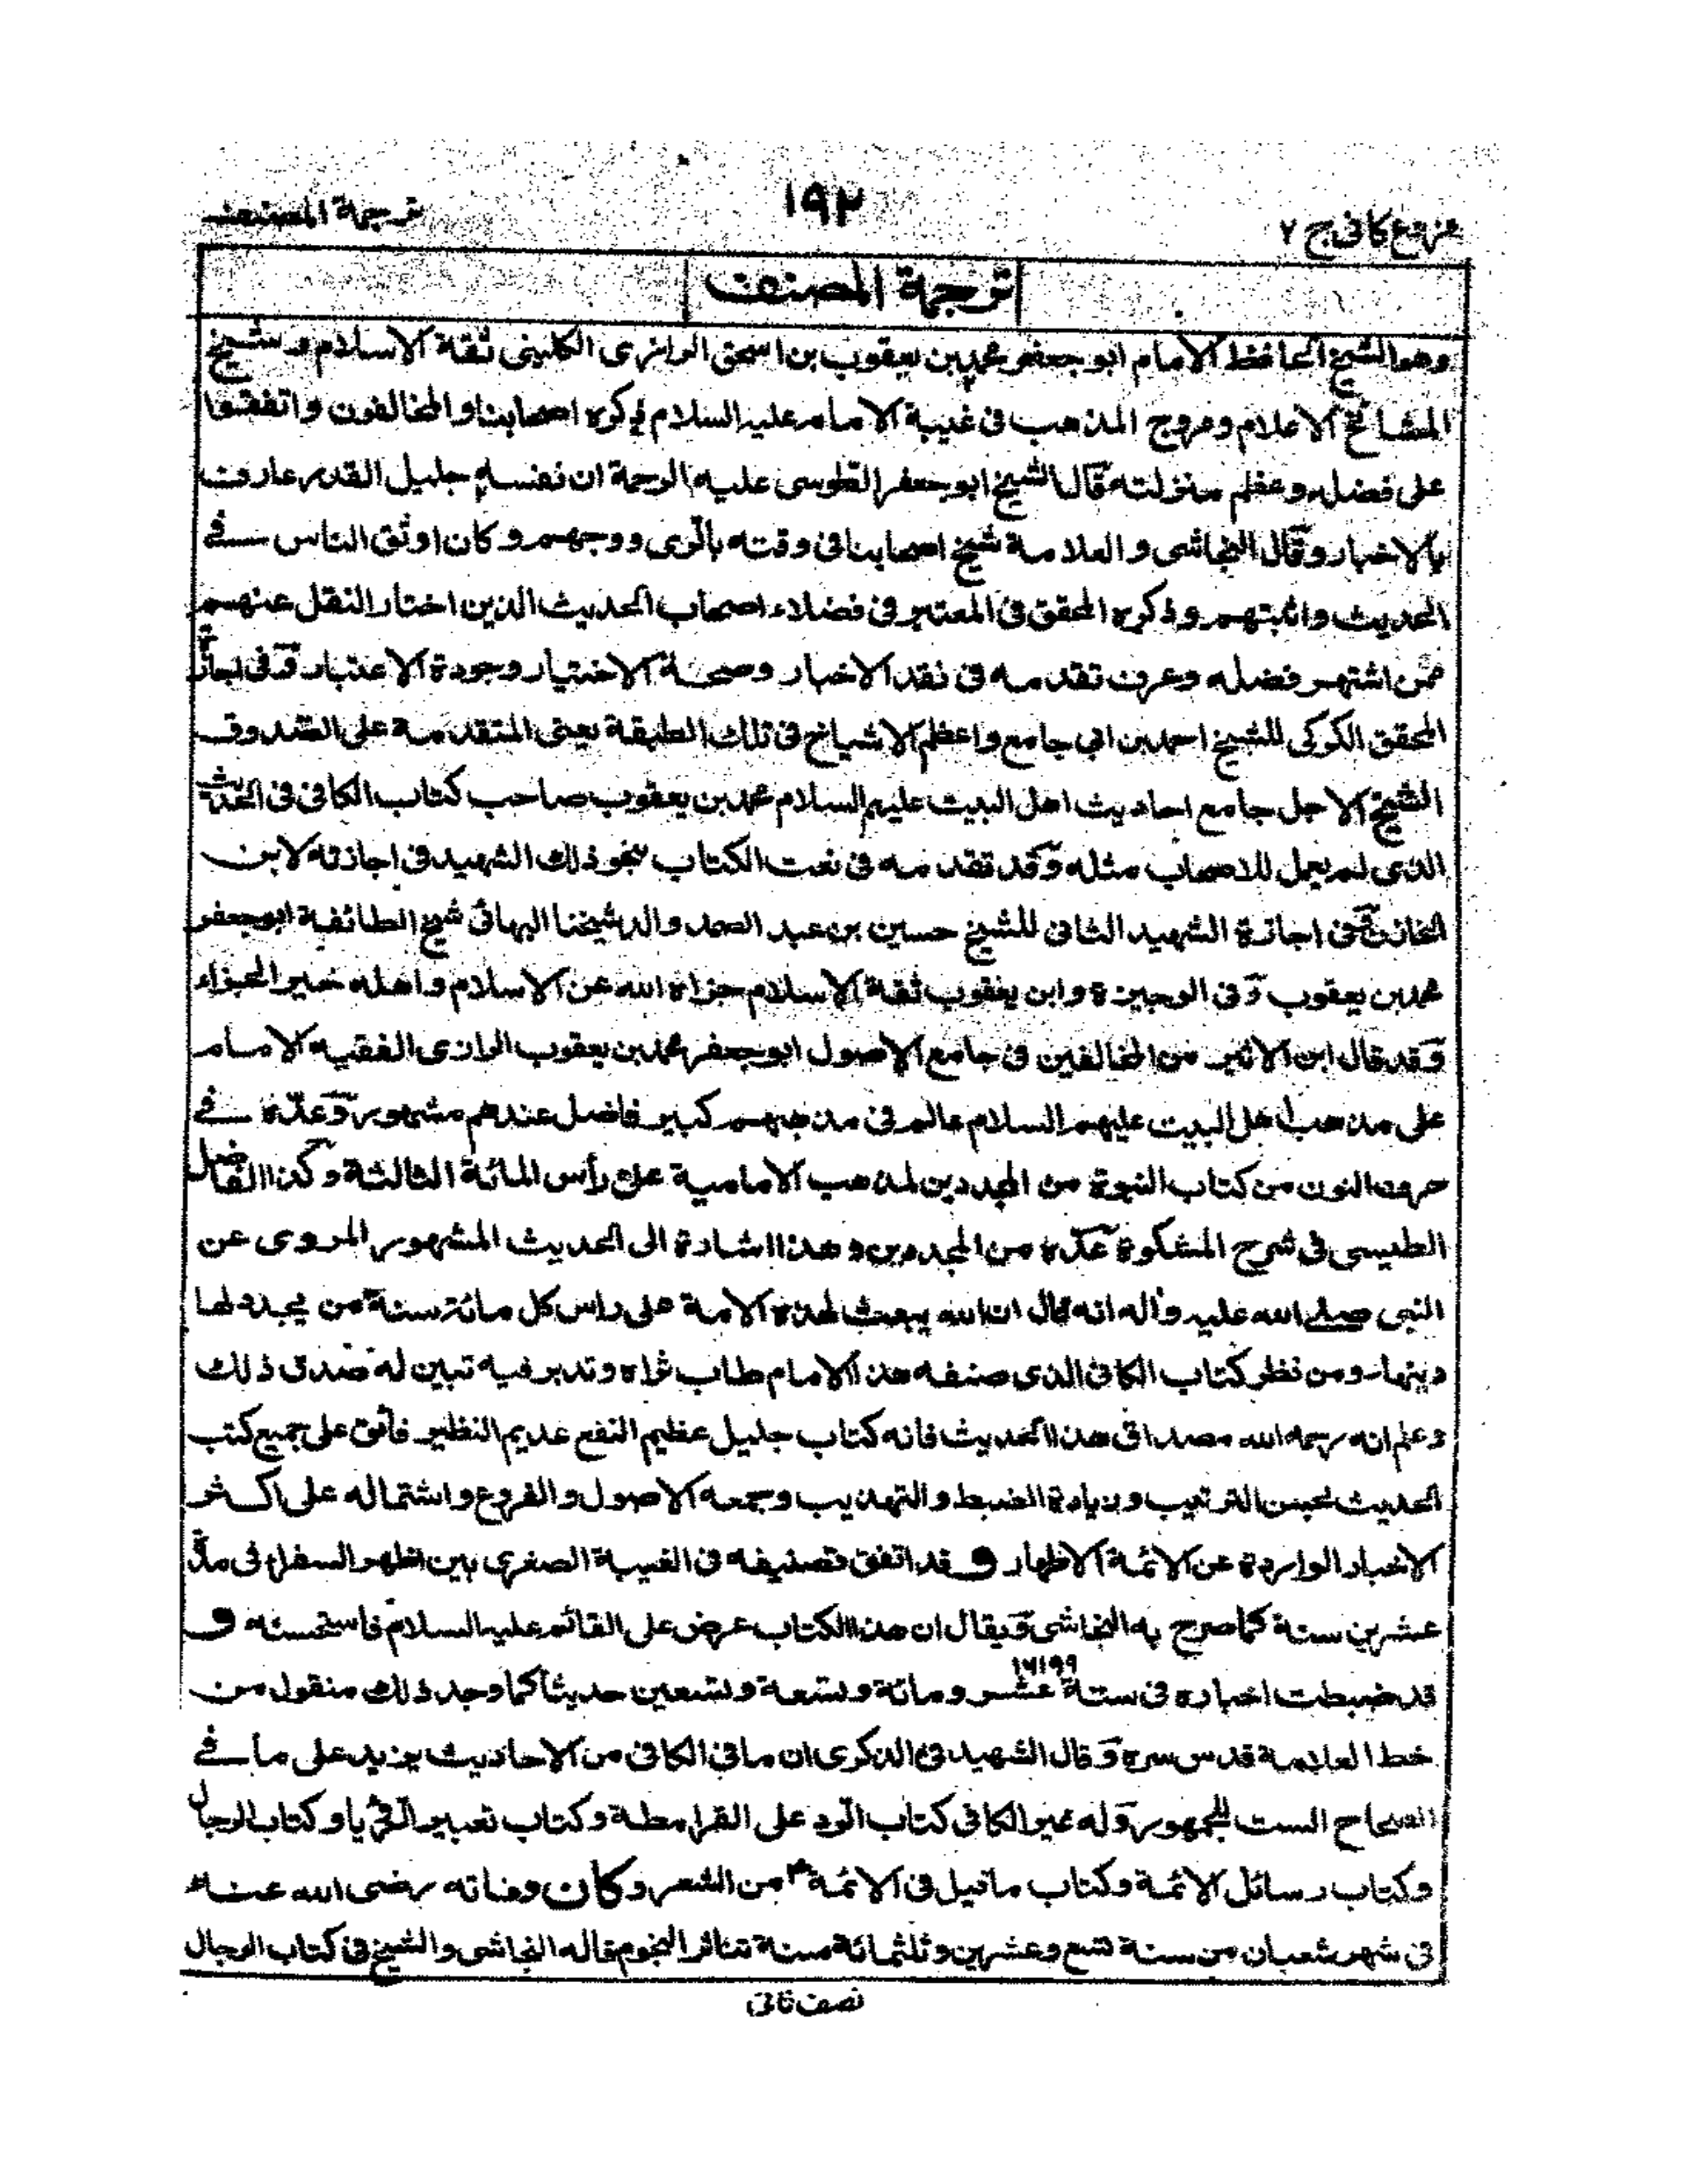 فروع كافى ج ٧
١٩٢
ترجمة المصنف
ترجمة المصنف
وهو الشيخ الحافظ الامام ابو جعفر محمد بن يعقوب بن اسحق الرازى الكلينى ثقة الاسلام و شيخ
المشائخ الاعلام ومروج المذهب فى غيبة الامام عليه السلام ذكره اصحابنا و المخالفون واتفقوا
على فضله وعظم منزلته قال الشيخ ابو جعفر الطوسى عليه الرحمة ان نفسه جليل القدر عارف
بالاخبار وقال النجاشى و العلامة شيخ اصحابنا فى وقته بالرى ووجههم وكان اوثق الناس فى
الحديث واثبتهم وذكره المحقق فى المعتبر فى فضلاء اصحاب الحديث الذين اختار النقل عنهم
ممن اشتهر فضله وعرف تقدمه فى نقد الاخبار وصحة الاختيار وجودة الاعتبار وفى اجازة
المحقق الكركى للشيخ احمد بن ابى جامع واعظم الاشياخ فى تلك الطبقة يعنى المتقدمة على الصدوق
الشيخ الاجل جامع احاديث اهل البيت عليهم السلام محمد بن يعقوب صاحب كتاب الكافى فى الحديث
الذى لم يعمل للاصحاب مثله وقد تقدمه فى نعت الكتاب بنحو ذلك الشهيد فى اجازته لابن
الخازن وفى اجازة الشهيد الثانى للشيخ حسين بن عبد الصمد والد شيخنا البهائى شيخ الطائفة ابو جعفر
محمد بن يعقوب وفى الوجيزة وابن يعقوب ثقة الاسلام جزاه الله عن الاسلام واهله خير الجزاء
وقد قال ابن الاثير من المخالفين فى جامع الاصول ابو جعفر محمد بن يعقوب الرازى الفقيه الامام
على مذهب اهل البيت عليهم السلام عالم فى مذهبهم كبير فاضل عندهم مشهور وعده فى
حرف النون من كتاب النبوة من المجددين لمذهب الامامية على رأس المائة الثالثة وكذا الفاضل
الطيبى فى شرح المشكوة عده من المجددين وهذا اشارة الى الحديث المشهور المروى عن
النبى صلى الله عليه وآله انه قال ان الله يبعث لهذه الامة على راس كل مائة سنة من يجدد لها
دينها ومن نظر كتاب الكافى الذى صنفه هذا الامام طاب ثراه وتدبر فيه تبين له صدق ذلك
وعلم انه رحمه الله مصداق هذا الحديث فانه كتاب جليل عظيم النفع عديم النظير فائق على جميع كتب
الحديث بحسن الترتيب وزيادة الضبط و التهذيب وجمعه الاصول و الفروع واشتماله على اكثر
الاخبار الواردة عن الائمة الاطهار و قد اتفق تصنيفه فى الغيبة الصغرى بين اظهر السفراء فى مدة
عشرين سنة كما صرح به النجاشى ويقال ان هذا الكتاب عرض على القائم عليه السلام فاستحسنه و
١٦١٩٩
قد ضبطت اخباره فى ستة عشر ومائة وتسعة وتسعين حديثا كما وجد ذلك منقول من
خط العلامة قدس سره وقال الشهيد فى الذكرى ان ما فى الكافى من الاحاديث يزيد على ما فى
الصحاح الست للجمهور وله غير الكافى كتاب الرد على القرامطة وكتاب تعبير الرؤيا وكتاب الرجال
وكتاب رسائل الائمة وكتاب ما قيل فى الائمة م من الشعر وكان وفاته رضى الله عنه
فى شهر شعبان من سنة تسع وعشرين وثلثمائة سنة تناثر النجوم قاله النجاشى والشيخ فى كتاب الرجال
نصف ثانى